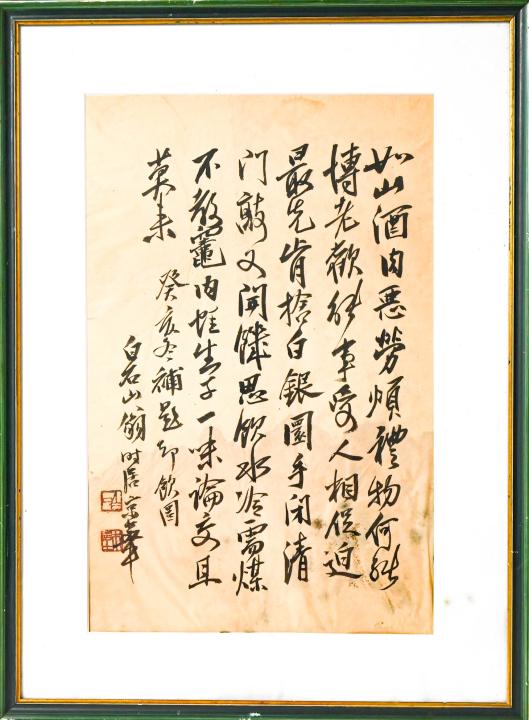 如山酒肉恶勞煩禮物何能
博老歡能事受人相促迫
最先肯捨白銀圜手闭清
门敲又開饑思飲水冷需煤
不教竈内蛙生子一味論交且
莫来
癸亥冬補題却飲圖
白石山翁时居京華